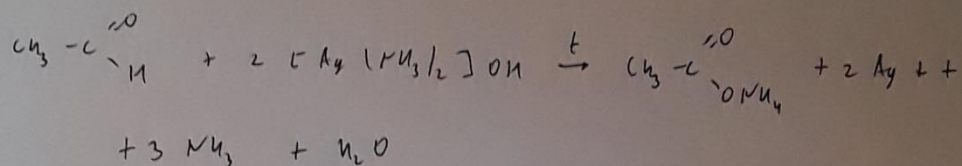 CH₃ -C =O \H + 2 [ Ag (NH₃)₂ ] OH →t CH₃ -C =O \ONH₄ + 2 Ag ↓ +
+ 3 NH₃ + H₂O